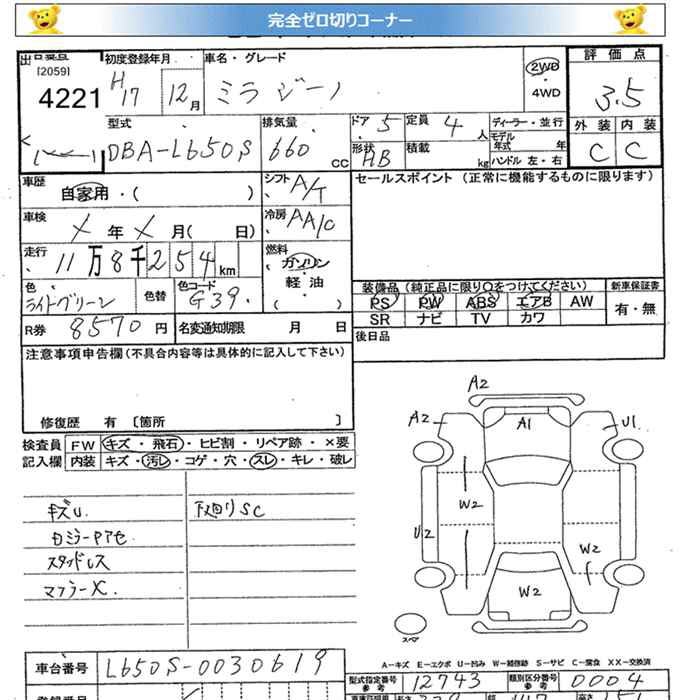 完全ゼロ切りコーナー
[2059]
4221
初度登録年月 H17 12月
車名・グレード
ミラ ジーノ
2WD
4WD
評価点
3.5
外装 内装
C C
型式
DBA-L650S
排気量
660 CC
ドア 5
形状 HB
定員 4人
積載 kg
ディーラー・並行
モデル年式 年
ハンドル 左・右
車歴
自家用・( )
シフト A/T
セールスポイント (正常に機能するものに限ります)
車検 X年X月( 日)
冷房 AA/C
走行
11万8千254km
燃料
ガソリン
軽油
( )
色
ライトグリーン
色替
色コード
G39
装備品 (純正品に限り○をつけてください)
新車保証書
PS PW ABS エアB AW
SR ナビ TV カワ
有・無
R券 8570円
名変通知期限 月 日
後日品
注意事項申告欄 (不具合内容等は具体的に記入して下さい)
修復歴 有 [箇所 ]
検査員記入欄
FW キズ・飛石・ヒビ割・リペア跡・×要
内装 キズ・汚レ・コゲ・穴・スレ・キレ・破レ
キズU
下廻りSC
スタッドレス
マフラーX
A2
A2 A1 U1
W2
U2 W2
W2
スペア
A-キズ E-エクボ U-凹み W-補修跡 S-サビ C-腐食 XX-交換済
車台番号 L650S-0030619
型式指定番号 参考 12743
類別区分番号 参考 0004